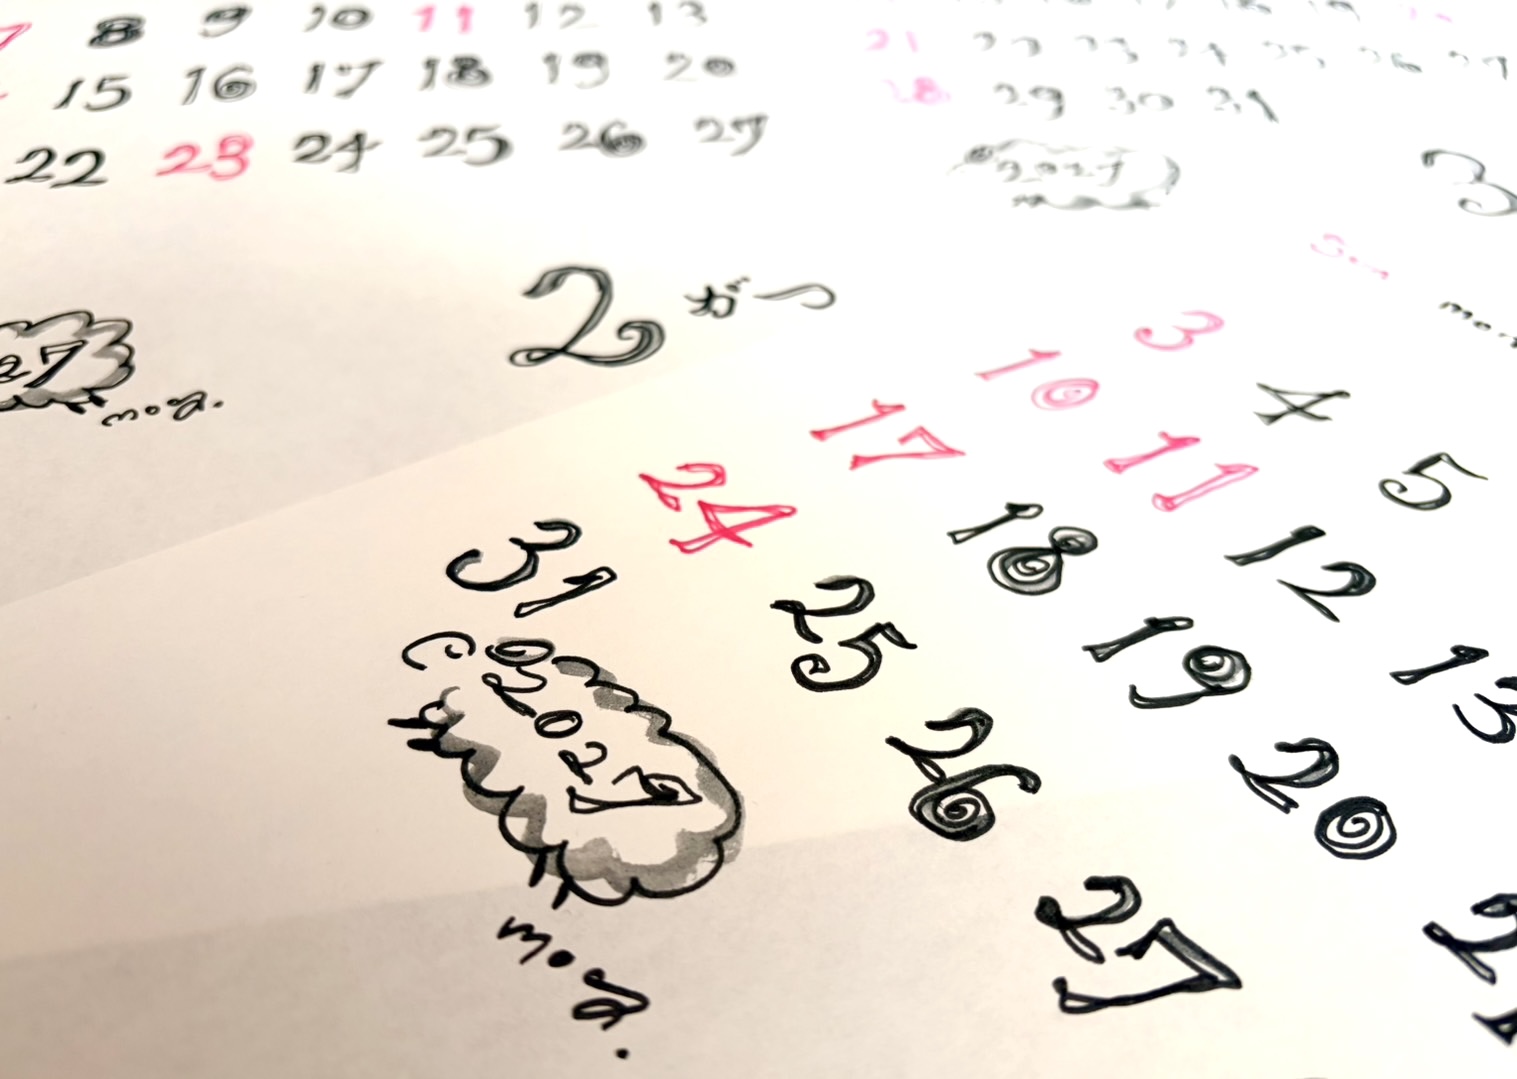 7 8 9 10 11 12 13
15 16 17 18 19 20
22 23 24 25 26 27
21 22 23 24 25 26 27
28 29 30 31
2027
3
27
mog.
2がつ
3 4 5
10 11 12 13
17 18 19 20
24 25 26 27
31
2027
mog.